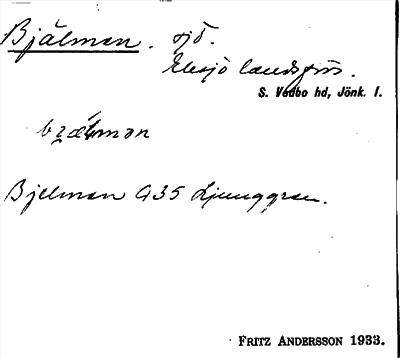 Bjälman. sjö.
Eksjö landsförs.
S. Vedbo hd, Jönk. l.
bjælman
Bjelman G35 Ljunggren.
FRITZ ANDERSSON 1933.